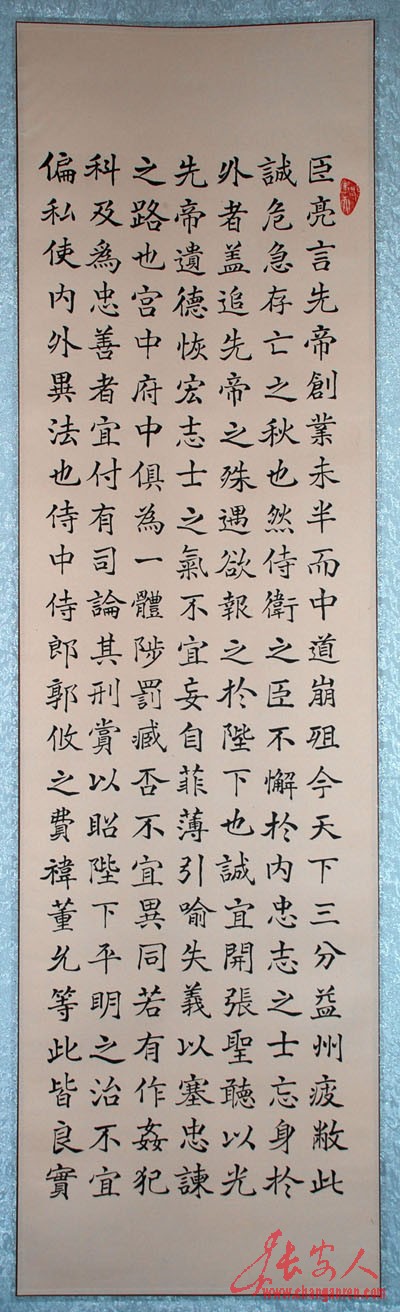 臣亮言先帝創業未半而中道崩殂今天下三分益州疲敝此
誠危急存亡之秋也然侍衛之臣不懈於内忠志之士忘身於
外者盖追先帝之殊遇欲報之於陛下也誠宜開張聖聽以光
先帝遺德恢宏志士之氣不宜妄自菲薄引喻失義以塞忠諫
之路也宮中府中俱為一體陟罰臧否不宜異同若有作姦犯
科及爲忠善者宜付有司論其刑賞以昭陛下平明之治不宜
偏私使内外異法也侍中侍郎郭攸之費禕董允等此皆良實
长安人
www.changanren.com